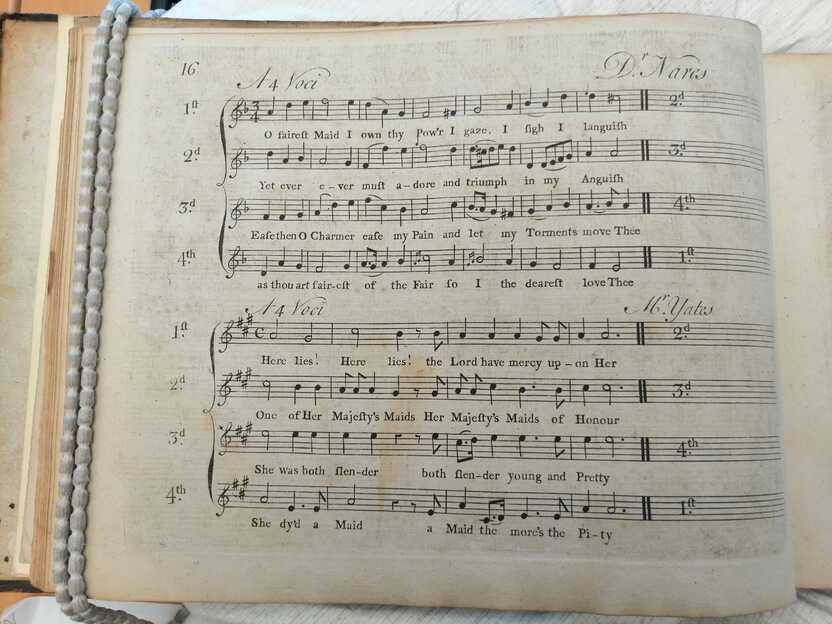 16
A 4 Voci
Dr. Nares
1.st
2.d
O faireſt Maid I own thy Pow'r I gaze, I ſigh I languiſh
2.d
3.d
Yet ever e-ver muſt a-dore and triumph in my Anguiſh
3.d
4.th
Eaſe then O Charmer eaſe my Pain and let my Torments move Thee
4.th
1.st
as thou art fair-eſt of the Fair ſo I the deareſt love Thee
A 4 Voci
Mr. Yates
1.st
2.d
Here lies! Here lies! the Lord have mercy up-on Her
2.d
3.d
One of Her Majeſty's Maids Her Majeſty's Maids of Honour
3.d
4.th
She was both ſlen-der both ſlen-der young and Pretty
4.th
1.st
She dy'd a Maid a Maid the more's the Pi-ty